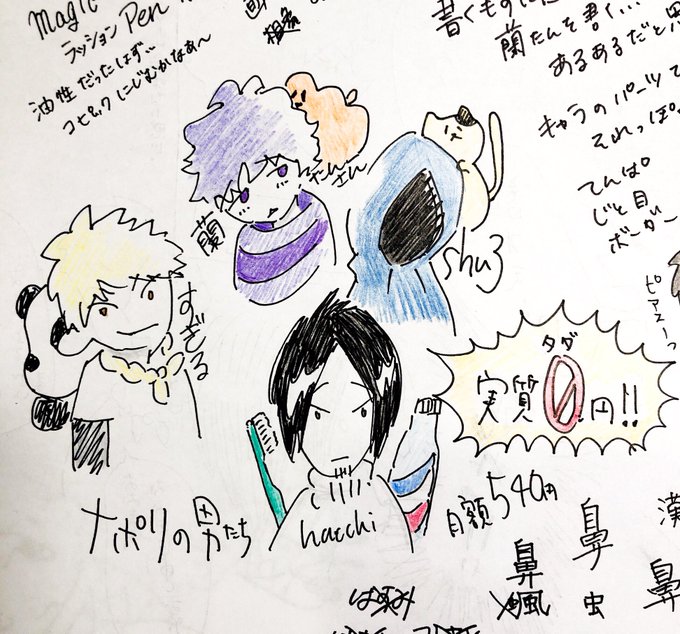 magic
ラッション Pen
油性だったはず、、
コピック にじむかなあ〜
書くものに
蘭たんを書く…
あるあるだと思
キャラのパーツて
それっぽ
てんぱ。
じと目
ボーダー
ピアスーっ
たんさん
蘭
shu3
すぎる
タダ
実質0円!!
hacchi
ナポリの男たち
月額540円
鼻
鼻
虫
漢
鼻